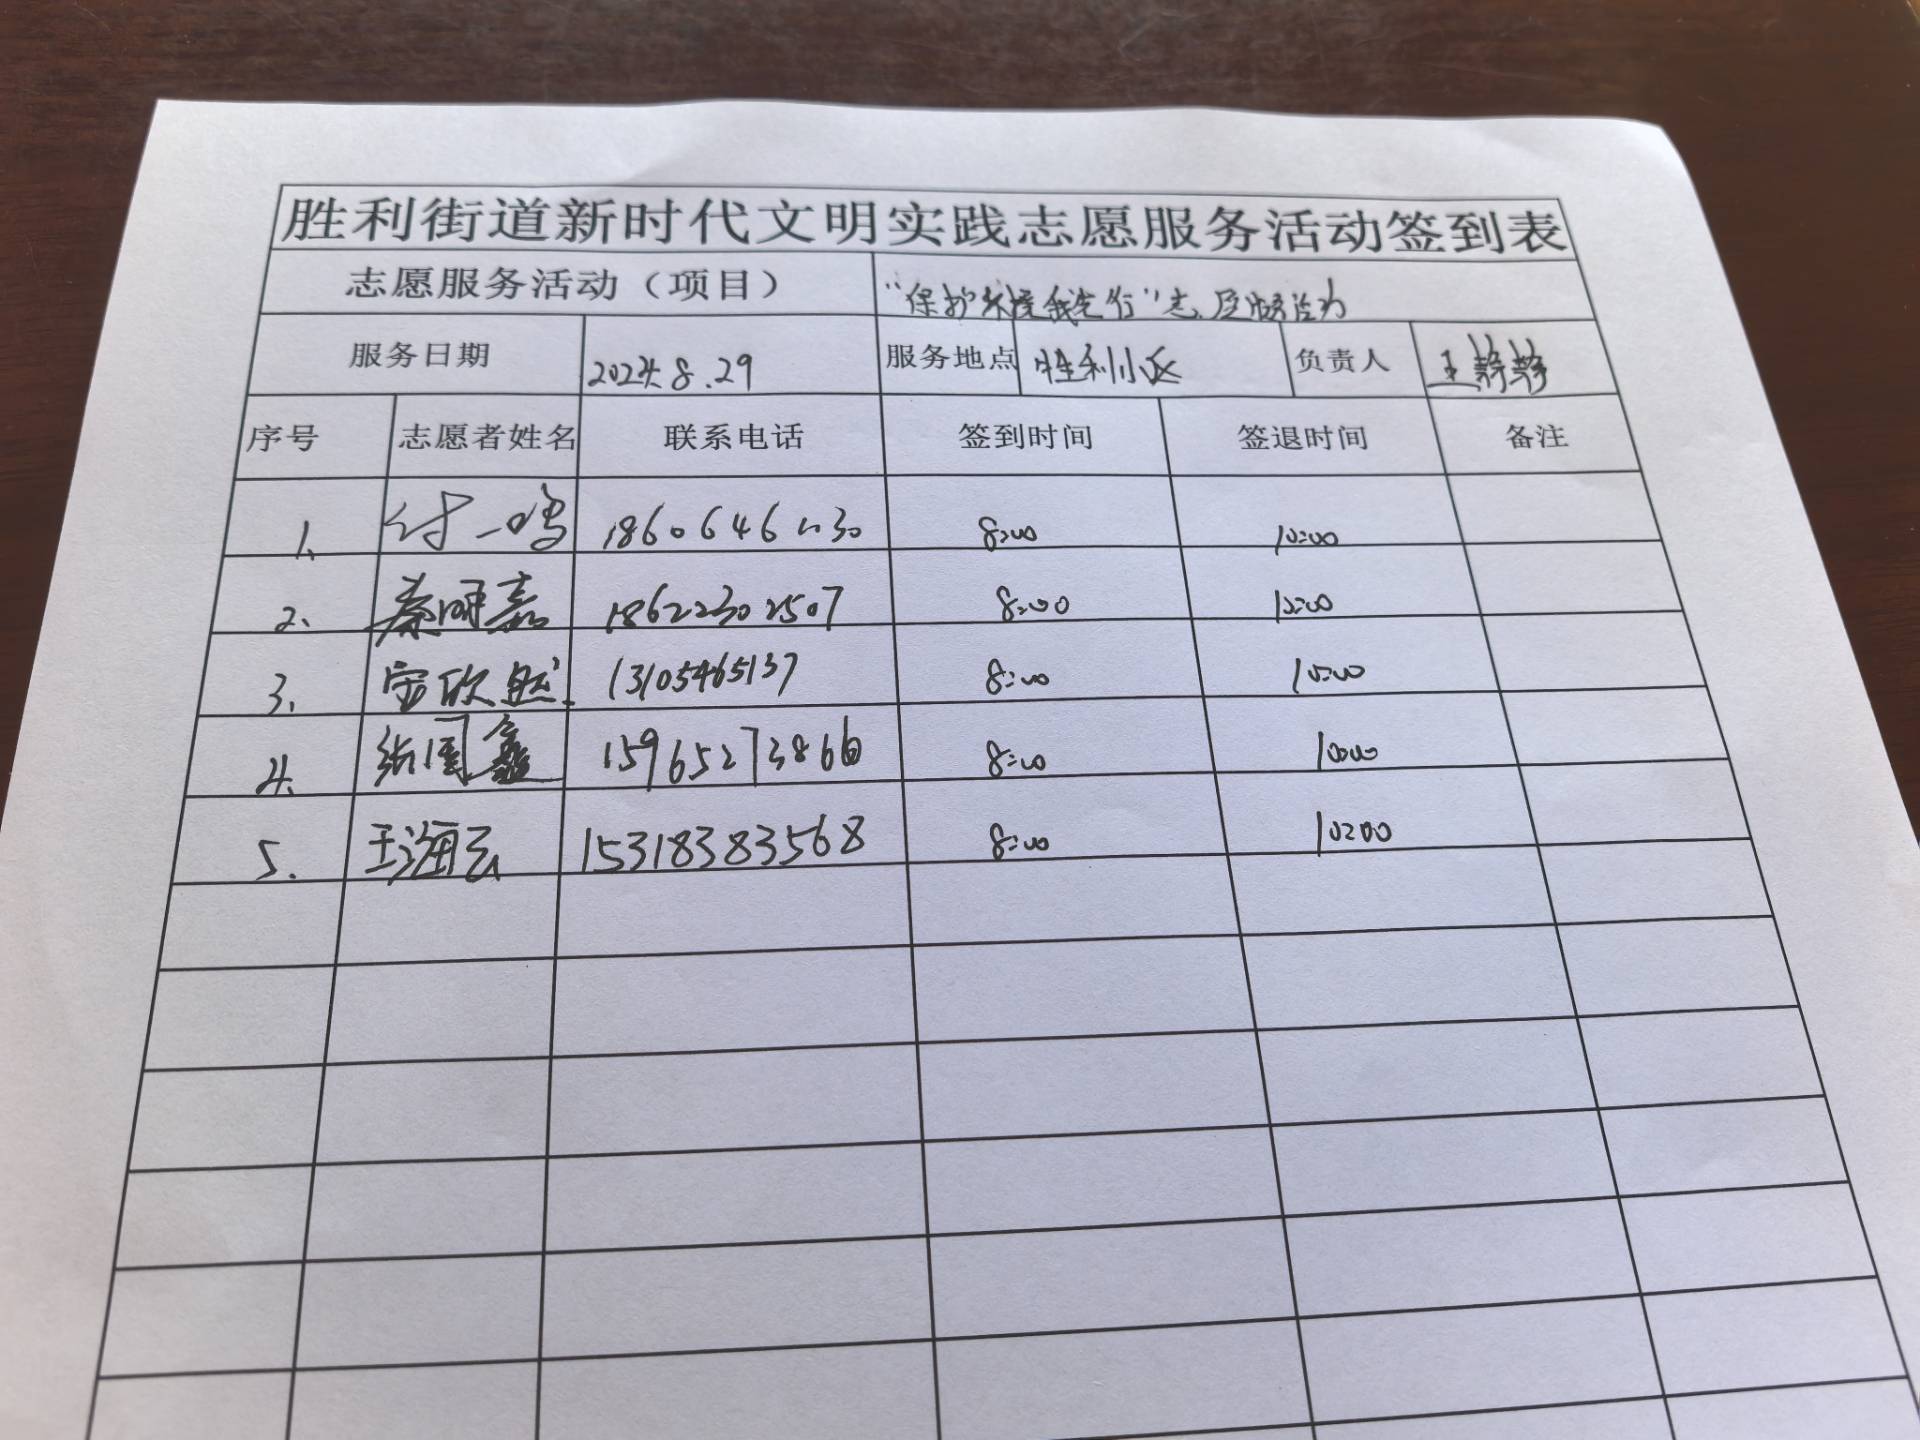 胜利街道新时代文明实践志愿服务活动签到表
志愿服务活动（项目） “保护环境我先行”志愿服务活动
服务日期 2024.8.29 服务地点 胜利小区 负责人 王静静
序号 志愿者姓名 联系电话 签到时间 签退时间 备注
1、 付一鸣 8:00 10:00
2、 秦明嘉 18622302507 8:00 10:00
3、 欣然 13105465137 8:00 10:00
4、 张国鑫 15965273866 8:00 10:00
5、 王海云 15318383568 8:00 10:00